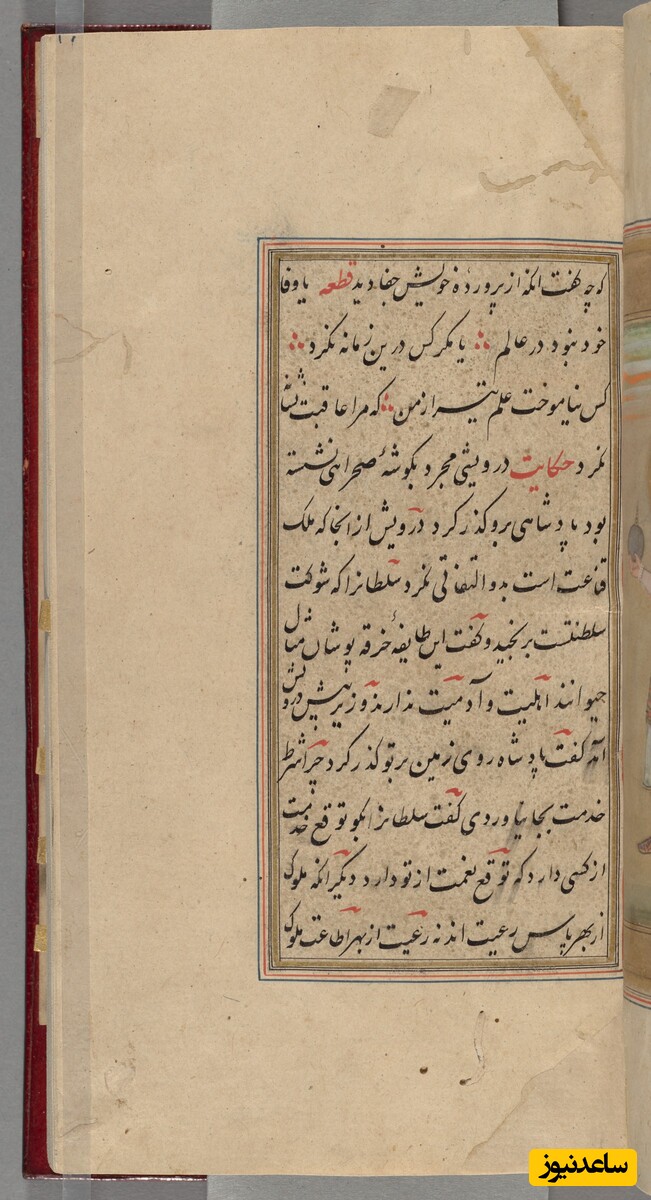 که چه گفت انکه از پرورده خویش جفا دید قطعه یا وفا
خود نبود در عالم یا مکر کس درین زمانه نکرد
کس نیاموخت علم تیر از من که مرا عاقبت نشانه
نکرد حکایت درویشی مجرد بکوشهٔ صحرائی نشسته
بود پادشاهی برو کذر کرد درویش از انجا که ملک
قناعت است بدو التفاتی نکرد سلطانرا که شوکت
سلطنتست برنجید و کفت این طایفهٔ خرقه پوشان مثال
حیوانند اهلیت و آدمیت ندارند وزیر پیش درویش
آمد کفت پادشاه روی زمین بر تو کذر کرد چرا شرط
خدمت بجا نیاوردی کفت سلطانرا بکو توقع خدمت
از کسی دارد که توقع نعمت از تو دارد دیکر انکه ملوک
از بهر پاس رعیت اند نه رعیت از بهر اطاعت ملوک
ساعدنیوز